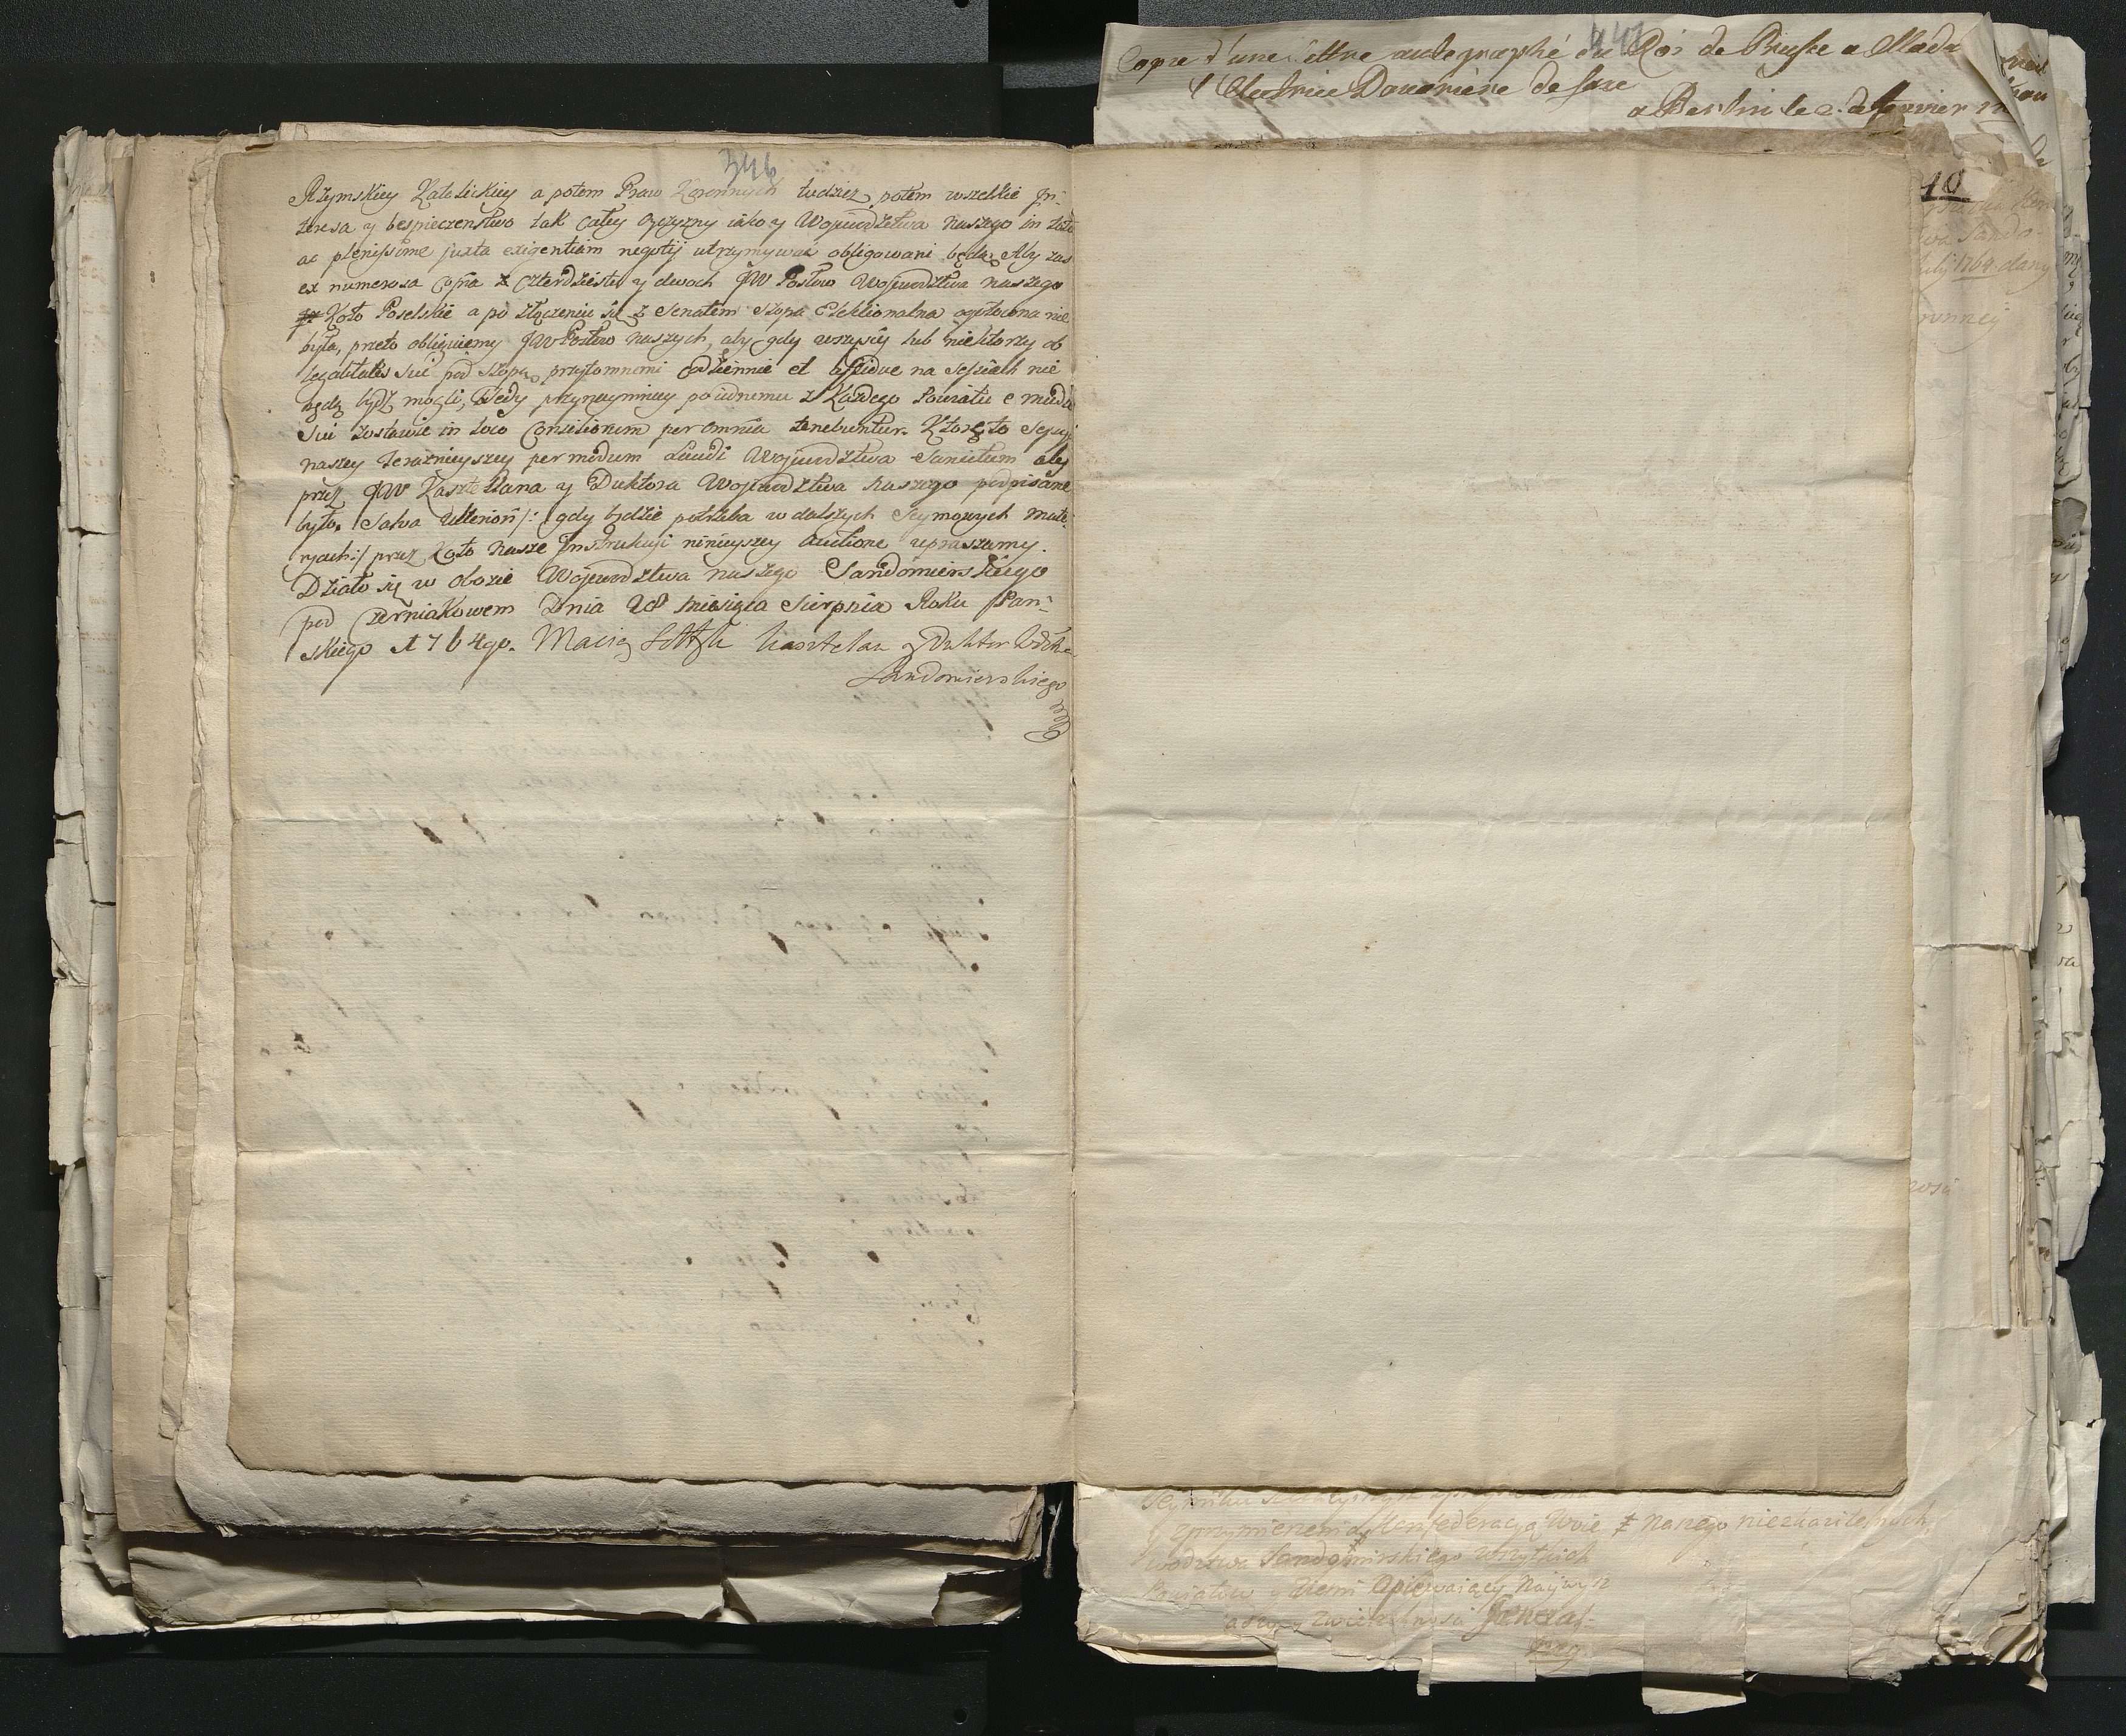 346
Rzymskiey Katolickiey a potem Praw Koronnych tudzież potem wszelkie In-
teresa y bespieczenstwo tak całey Oyczyzny iako y Wojewodztwa naszego in toto
ac plenissime juxta exigentiam negotij utrzymywać obligowani będą. Aby zas
ex numerosa Copia z Czterdziestu y dwoch JW Posłow Wojewodztwa naszego
Koło Poselskie a po złączeniu się z Senatem Szopa Elektionalna ogołocona nie
była, przeto obliguiemy JW Posłow naszych, aby gdy wszyscy lub niektorzy ob
legalitates sui pod szopą przytomnemi Codziennie et assidue na Sessiach nie
będą bydź mogli, Tedy przynaymniey po iednemu z Każdego Powiatu e medio
Sui zostawić in loco Consiliorum per omnia tenebuntur. Ktorę to Sessyi
naszey teraznieyszey per modum Laudi Wojewodztwa Sancitum aby
przez JW Kasztellana y Duktora Wojewodztwa naszego podpisane
było, Salva Ulteriori /: gdy będzie potrzeba w dalszych Seymowych mate-
ryach :/ przez Koło nasze Instrukcji ninieyszey Auctione upraszamy.
Działo się w obozie Wojewodztwa naszego Sandomierskiego
pod Czerniakowem Dnia 28 miesiąca Sierpnia Roku Pan-
skiego 1764go. Maciej Sołtyk Kasztelan y Duktor
Sandomierskiego
447
Copie d'une lettre autographé du Roi de Prusse a Mada
l'Electrice Douariere de Saxe
a Berlin le 2. de
40
Sando-
July 1764 dany
Konfederacyą Woie naszego
wodztwa Sandomirskiego wszytkich
Powiatow y Ziemi
General-